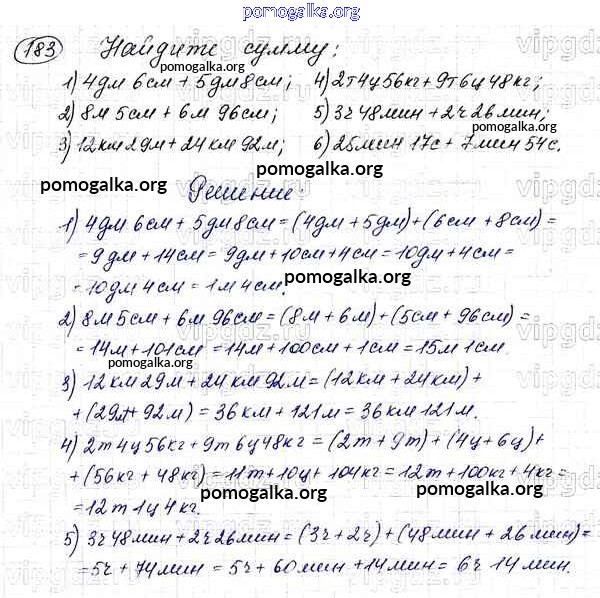 pomogalka.org
183 Найдите сумму:
1) 4дм 6см + 5дм 8см; 4) 2т 4ц 56кг + 9т 6ц 48кг;
2) 8м 5см + 6м 96см; 5) 3ч 48мин + 2ч 26мин;
3) 12км 29м + 24км 92м; 6) 25мин 17с + 7мин 54с.
Решение:
1) 4дм 6см + 5дм 8см = (4дм + 5дм) + (6см + 8см) =
= 9дм + 14см = 9дм + 10см + 4см = 10дм + 4см =
= 10дм 4см = 1м 4см.
2) 8м 5см + 6м 96см = (8м + 6м) + (5см + 96см) =
= 14м + 101см = 14м + 100см + 1см = 15м 1см.
3) 12км 29м + 24км 92м = (12км + 24км) +
+ (29м + 92м) = 36км + 121м = 36км 121м.
4) 2т 4ц 56кг + 9т 6ц 48кг = (2т + 9т) + (4ц + 6ц) +
+ (56кг + 48кг) = 11т + 10ц + 104кг = 12т + 100кг + 4кг =
= 12т 1ц 4кг.
5) 3ч 48мин + 2ч 26мин = (3ч + 2ч) + (48мин + 26мин) =
= 5ч + 74мин = 5ч + 60мин + 14мин = 6ч 14мин.